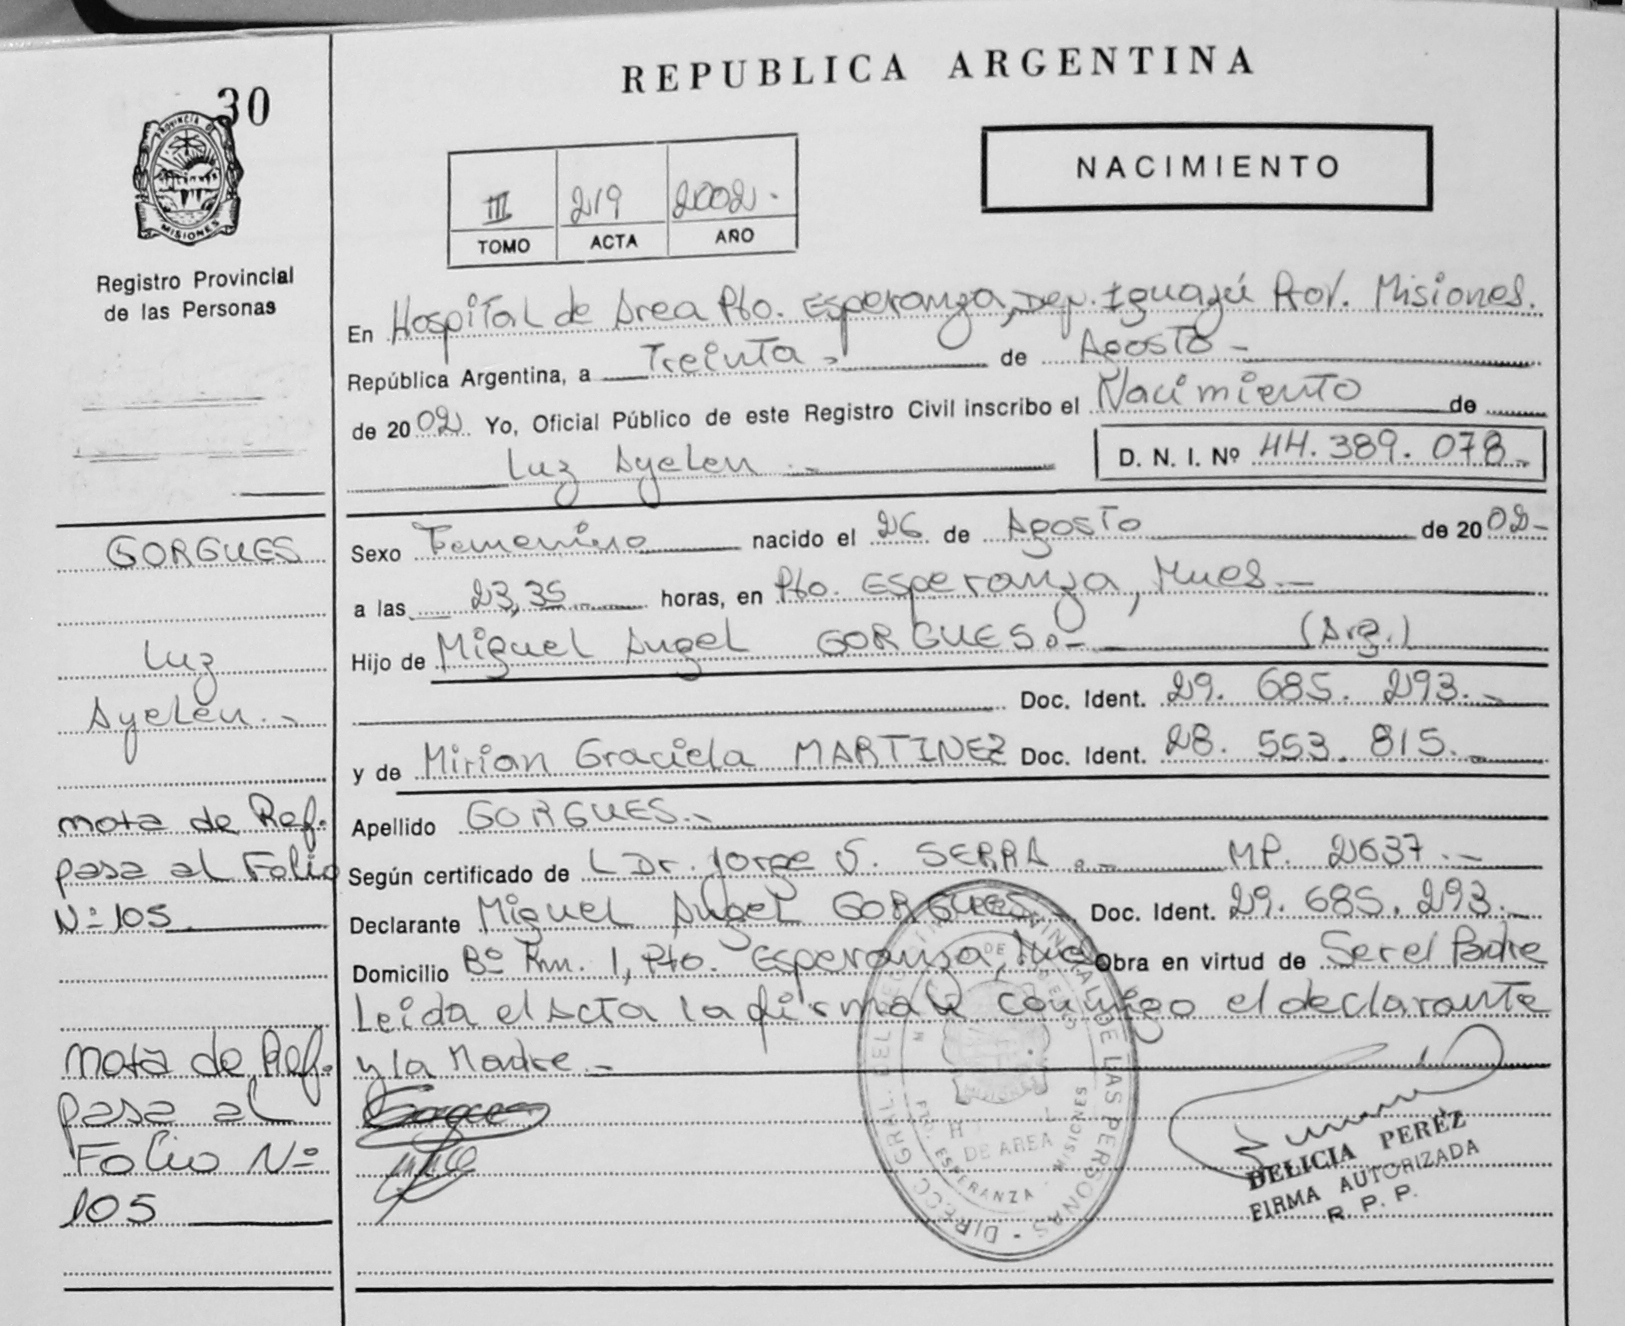 REPUBLICA ARGENTINA
30
PROVINCIA DE
MISIONES
Registro Provincial
de las Personas
NACIMIENTO
III 219 2002.-
TOMO ACTA AÑO
En Hospital de Area Pto. Esperanza, Dep. Iguazú Prov. Misiones.
República Argentina, a Treinta.- de Agosto -
de 2002 Yo, Oficial Público de este Registro Civil inscribo el Nacimiento de
Luz Ayelen .- D. N. I. Nº 44.389.078.-
Sexo Femenino nacido el 26 de Agosto de 2002-
a las 23,35 horas, en Pto. Esperanza, Mnes.-
Hijo de Miguel Angel GORGUES.- (Arg.)
Doc. Ident. 29.685.293.-
y de Mirian Graciela MARTINEZ Doc. Ident. 28.553.815.-
Apellido GORGUES.-
Según certificado de L Dr. Jorge S. SERRA .- MP. 2637.-
Declarante Miguel Angel GORGUES.- Doc. Ident. 29.685.293.-
Domicilio Bº Km. 1, Pto. Esperanza, Mnes Obra en virtud de Ser el Padre
Leida el Acta la firman conmigo el declarante
y la Madre.-
GORGUES
Luz
Ayelen.-
nota de Ref.
pasa al Folio
Nº 105
nota de Ref.
pasa al
Folio Nº
105
DIRECC. GRAL. DEL REG. PROVINCIAL DE LAS PERSONAS
DE AREA
PTO. ESPERANZA - MISIONES
DELICIA PEREZ
FIRMA AUTORIZADA
R. P. P.